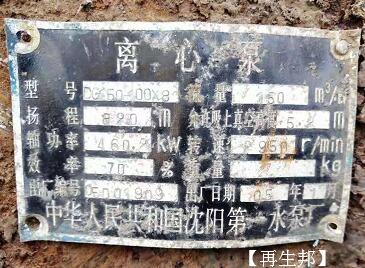 离心泵
型号 流量 150 m³/h
扬程 820 m 允许吸上真空高 5. m
轴功率 460. kW 转速 2950 r/min
效率 70 % 重量 kg
出厂编号 0501909 出厂日期 05年 月
中华人民共和国沈阳第一水泵厂
【再生邦】